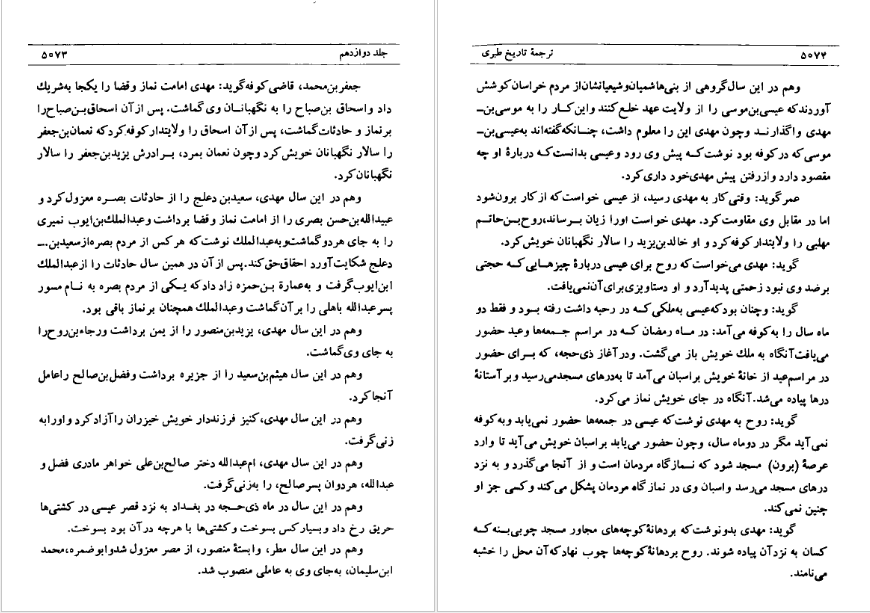 جلد دوازدهم ۵۰۷۳
جعفر بن محمد، قاضی کوفه گوید: مهدی امامت نماز و قضا را یکجا به شریك
داد و اسحاق بن صباح را به نگهبانان وی گماشت. پس از آن اسحاق بن صباح را
بر نماز و حادثات گماشت، پس از آن اسحاق را ولایتدار کوفه کرد که نعمان بن جعفر
را سالار نگهبانان خویش کرد و چون نعمان بمرد، برادرش یزید بن جعفر را سالار
نگهبانان کرد.
وهم در این سال مهدی، سعید بن دعلج را از حادثات بصره معزول کرد و
عبیدالله بن حسن بصری را از امامت نماز و قضا برداشت و عبدالملك بن ایوب نمیری
را به جای هر دو گماشت و به عبدالملك نوشت که هر کس از مردم بصره از سعید بن ـ
دعلج شکایت آورد احقاق حق کند. پس از آن در همین سال حادثات را از عبدالملك
ابن ایوب گرفت و به عمارة بن حمزه زاد داد که یکی از مردم بصره به نام مسور
پسر عبدالله باهلی را بر آن گماشت و عبدالملك همچنان بر نماز باقی بود.
وهم در این سال مهدی، یزید بن منصور را از یمن برداشت و رجاء بن روح را
به جای وی گماشت.
وهم در این سال هیثم بن سعید را از جزیره برداشت و فضل بن صالح را عامل
آنجا کرد.
وهم در این سال مهدی، کنیز فرزنددار خویش خیزران را آزاد کرد و او را به
زنی گرفت.
وهم در این سال مهدی، ام عبدالله دختر صالح بن علی خواهر مادری فضل و
عبدالله، هر دوان پسر صالح، را به زنی گرفت.
وهم در این سال در ماه ذی حجه در بغداد به نزد قصر عیسی در کشتی‌ها
حریق رخ داد و بسیار کس بسوخت و کشتی‌ها با هر چه در آن بود بسوخت.
وهم در این سال مطر، وابستهٔ منصور، از مصر معزول شد و ابوضمره، محمد
ابن سلیمان، به جای وی به عاملی منصوب شد.
۵۰۷۴ ترجمهٔ تاریخ طبری
وهم در این سال گروهی از بنی هاشمیان و شیعیانشان از مردم خراسان کوشش
آوردند که عیسی بن موسی را از ولایت عهد خلع کنند و این کار را به موسی بن ـ
مهدی واگذارند و چون مهدی این را معلوم داشت، چنانکه گفته‌اند به عیسی بن ـ
موسی که در کوفه بود نوشت که پیش وی رود و عیسی بدانست که دربارهٔ او چه
مقصود دارد و از رفتن پیش مهدی خودداری کرد.
عمر گوید: وقتی کار به مهدی رسید، از عیسی خواست که از کار برون شود
اما در مقابل وی مقاومت کرد. مهدی خواست او را زیان برساند، روح بن حاتم
مهلبی را ولایتدار کوفه کرد و او خالد بن یزید را سالار نگهبانان خویش کرد.
گوید: مهدی می‌خواست که روح برای عیسی دربارهٔ چیزهایی که حجتی
بر ضد وی نبود زحمتی پدید آرد و او دستاویزی برای آن نمی‌یافت.
گوید: و چنان بود که عیسی به ملکی که در رحبه داشت رفته بود و فقط دو
ماه سال را به کوفه می‌آمد: در ماه رمضان که در مراسم جمعه‌ها و عید حضور
می‌یافت آنگاه به ملك خویش باز می‌گشت. و در آغاز ذی حجه، که برای حضور
در مراسم عید از خانهٔ خویش بر اسبان می‌آمد تا به درهای مسجد می‌رسید و بر آستانهٔ
درها پیاده می‌شد. آنگاه در جای خویش نماز می‌کرد.
گوید: روح به مهدی نوشت که عیسی در جمعه‌ها حضور نمی‌یابد و به کوفه
نمی‌آید مگر در دو ماه سال، و چون حضور می‌یابد بر اسبان خویش می‌آید تا وارد
عرصهٔ (برون) مسجد شود که نمازگاه مردمان است و از آنجا می‌گذرد و به نزد
درهای مسجد می‌رسد و اسبان وی در نمازگاه مردمان پشکل می‌کند و کسی جز او
چنین نمی‌کند.
گوید: مهدی بدو نوشت که بر دهانهٔ کوچه‌های مجاور مسجد چوبی بنه که
کسان به نزد آن پیاده شوند. روح بر دهانهٔ کوچه‌ها چوب نهاد که آن محل را خشبه
می‌نامند.